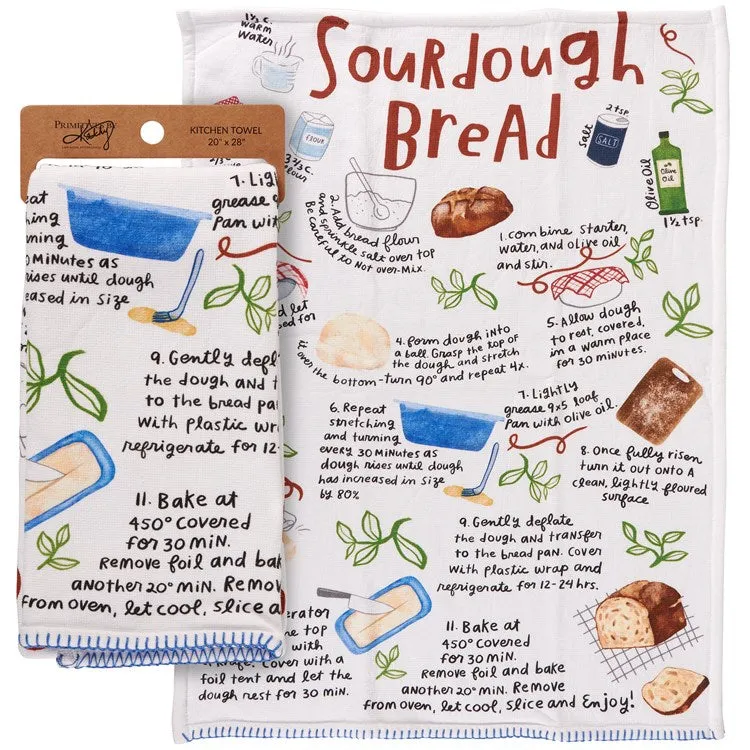 1½ c.
warm
water
Sourdough
Bread
PRIMITIVES BY
Kathy
KITCHEN TOWEL
20" x 28"
flour
3 ⅔ c.
flour
2 tsp
salt
SALT
Olive Oil
Olive
Oil
1½ tsp.
2. Add bread flour
and sprinkle salt over top
Be careful to Not over-Mix.
1. combine starter,
water, and olive oil
and stir.
d let
sed for
4. form dough into
a ball. Grasp the top of
the dough and stretch
it over the bottom-turn 90° and repeat 4x.
5. Allow dough
to rest, covered,
in a warm place
for 30 minutes.
6. Repeat
stretching
and turning
every 30 Minutes as
dough rises until dough
has increased in size
by 80%
7. Lightly
grease 9x5 loaf
Pan with olive oil.
8. Once fully risen
turn it out onto A
clean, lightly floured
surface
9. Gently deflate
the dough and transfer
to the bread pan. Cover
with plastic wrap and
refrigerate for 12-24 hrs.
erator
e top
with
Cover with a
foil tent and let the
dough rest for 30 min.
11. Bake at
450° covered
for 30 min.
Remove foil and bake
another 20° min. Remove
from oven, let cool, slice and Enjoy!
7. Lig
grease
Pan wit
eat
hing
ning
0 Minutes as
rises until dough
eased in size
9. Gently defl
the dough and t
to the bread pa
with plastic wr
refrigerate for 12-
11. Bake at
450° covered
for 30 min.
Remove foil and bak
another 20° min. Remov
from oven, let cool, slice a